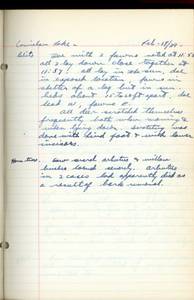 Lake - Feb. 18/49.
Doe with 2 fawns noted at 11:53
all 3 lay down close together at
11:57! all lay in sun, doe
in exposed location, fawns in
shelter of a log but in sun.
Beds about 15 to 20 ft apart, doe
bead a, fawns o.
All deer scratched themselves
frequently both when moving &
when lying down. Scratching was
done with hind foot & with lower
incisors.
Saw several arbutus & willow
bushes barked severely. Arbutus
in 2 cases had apparently died as
a result of bark removal.